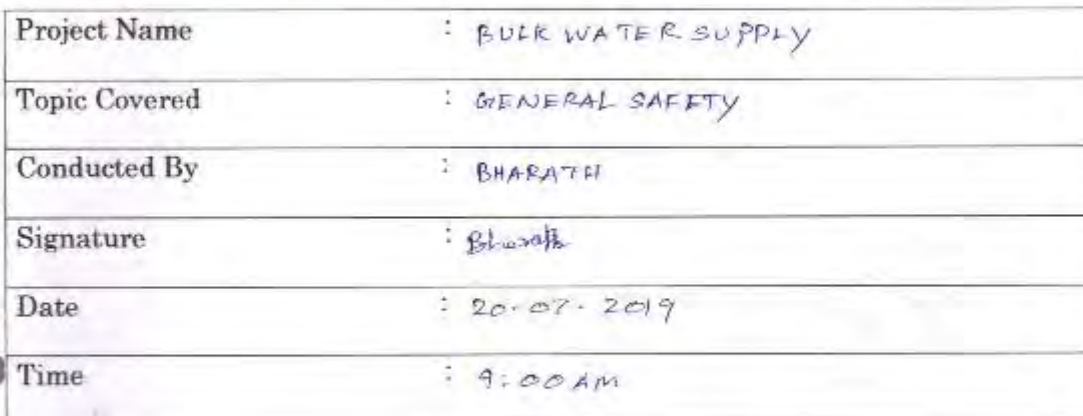 Project Name : BULK WATER SUPPLY
Topic Covered : GENERAL SAFETY
Conducted By : BHARATH
Signature : Bharath
Date : 20.07.2019
Time : 9:00 AM